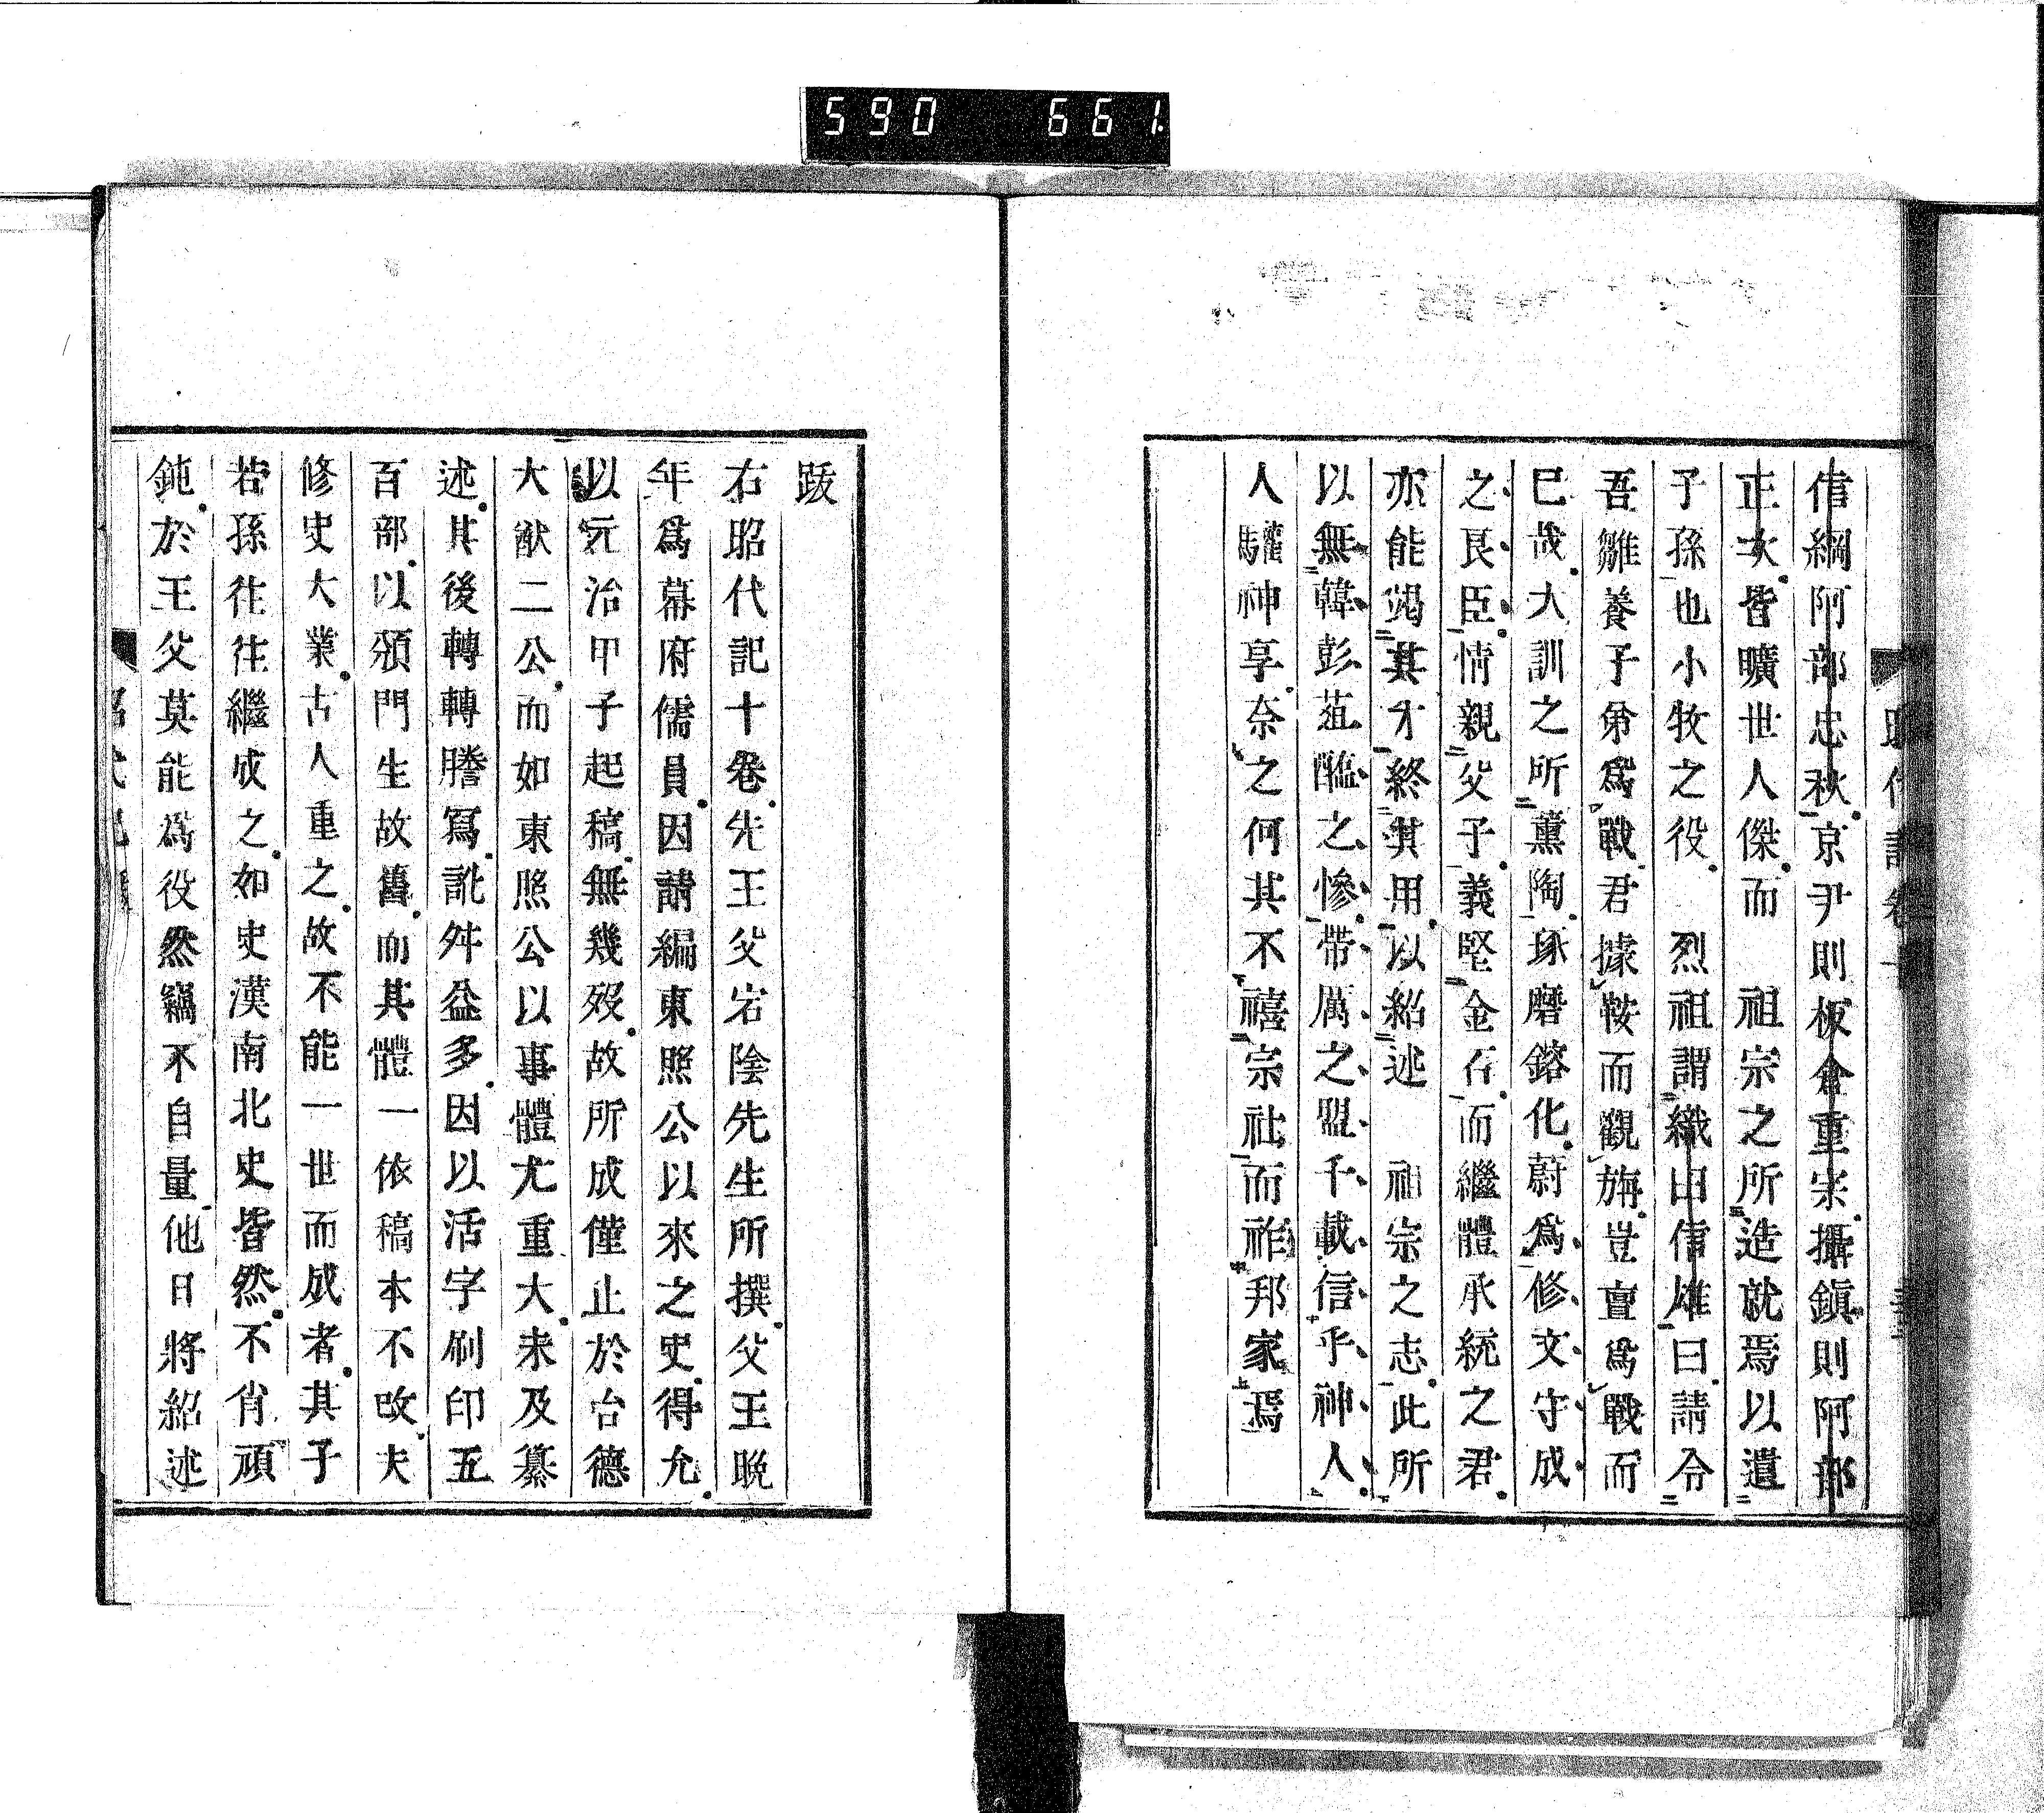 590 661
信綱阿部忠秋京尹則板倉重宗攝鎭則阿部
正次皆曠世人傑而 祖宗之所造就焉以遺
子孫也小牧之役 烈祖謂織田信雄曰請令
吾雛養子弟爲戰君據鞍而觀旃豈亶爲戰而
已哉大訓之所薰陶琢磨鎔化蔚爲修文守成
之良臣情親父子義堅金石而繼體承統之君
亦能竭其才終其用以紹述 祖宗之志此所
以無韓彭葅醢之慘帶厲之盟千載信乎神人
人驩神享奈之何其不禧宗社而祚邦家焉
跋
右昭代記十卷先王父宕陰先生所撰父王晩
年爲幕府儒員因請編東照公以來之史得允
以元治甲子起稿無幾歿故所成僅止於台德
大猷二公而如東照公以事體尤重大未及纂
述其後轉轉謄寫訛舛益多因以活字刷印五
百部以頒門生故舊而其體一依稿本不改夫
修史大業古人重之故不能一世而成者其子
若孫往往繼成之如史漢南北史皆然不肖頑
鈍於王父莫能爲役然竊不自量他日將紹述